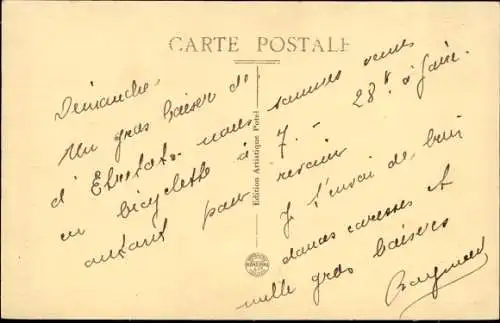 CARTE POSTALE
Dimanche.
Un gros baiser de
d'Etretat. nous sommes venus
en bicyclette à 7. - 28 k. à faire.
autant pour revenir
Je t'envoi de
douces caresses et
mille gros baisers
Raymond
Edition Artistique Potel